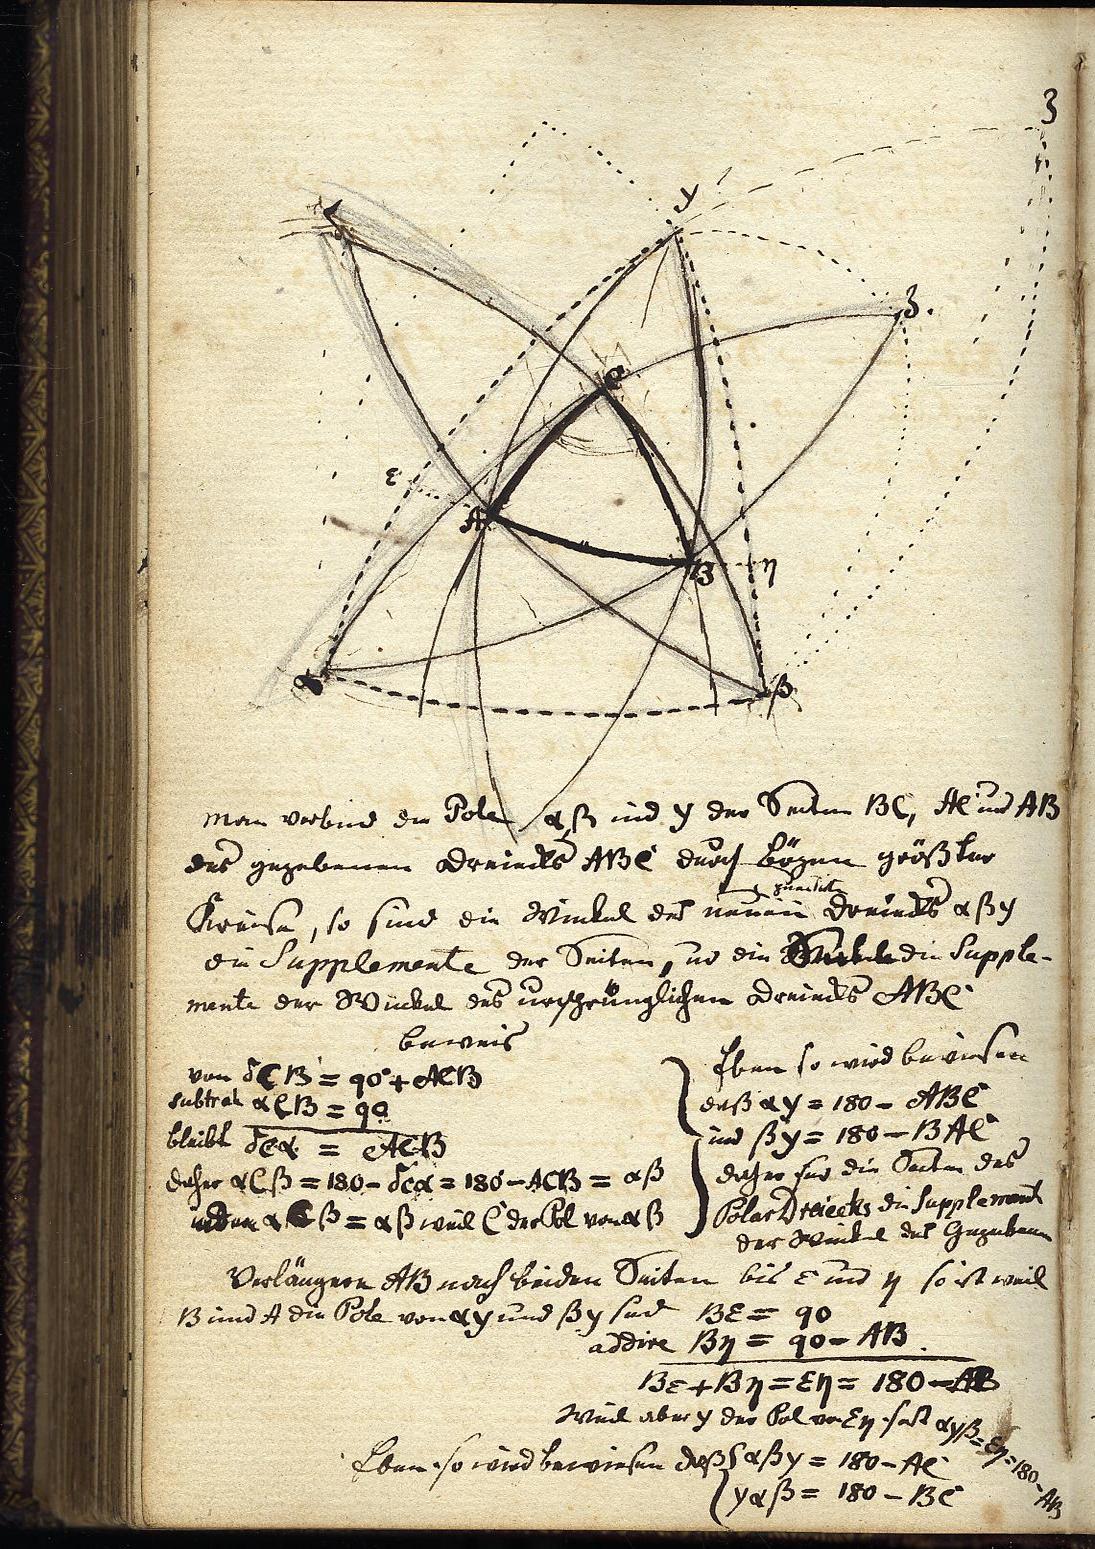 3
γ
3.
C
ε
A
B
η
α
β
Man verbinde die Pole α, β und γ der Seiten BC, AC und AB
des gegebenen Dreiecks ABC durch Bögen größter
Kreise, so sind die Winkel des neuen Dreiecks αβγ
die Supplemente der Seiten, und die Seiten die Supple-
mente der Winkel des ursprünglichen Dreiecks ABC
Beweis
von δCB = 90° + ACB
subtrah αCB = 90
bleibt δCα = ACB
daher αCβ = 180 - δCα = 180 - ACB = αβ
αCβ = αβ weil C der Pol von αβ
Eben so wird bewiesen
daß αγ = 180 - ABC
und βγ = 180 - BAC
daher sind die Seiten des
PolarDreiecks die Supplement
der Winkel des Gegebenen
Verlängere AB nach beiden Seiten bis ε und η so ist weil
B und A die Pole von αγ und βγ sind Bε = 90
addire Bη = 90 - AB
Bε + Bη = εη = 180 - AB
Weil aber γ der Pol von εη so ist αγβ = εη = 180 - AB
Eben so wird bewiesen daß αβγ = 180 - AC
γαβ = 180 - BC